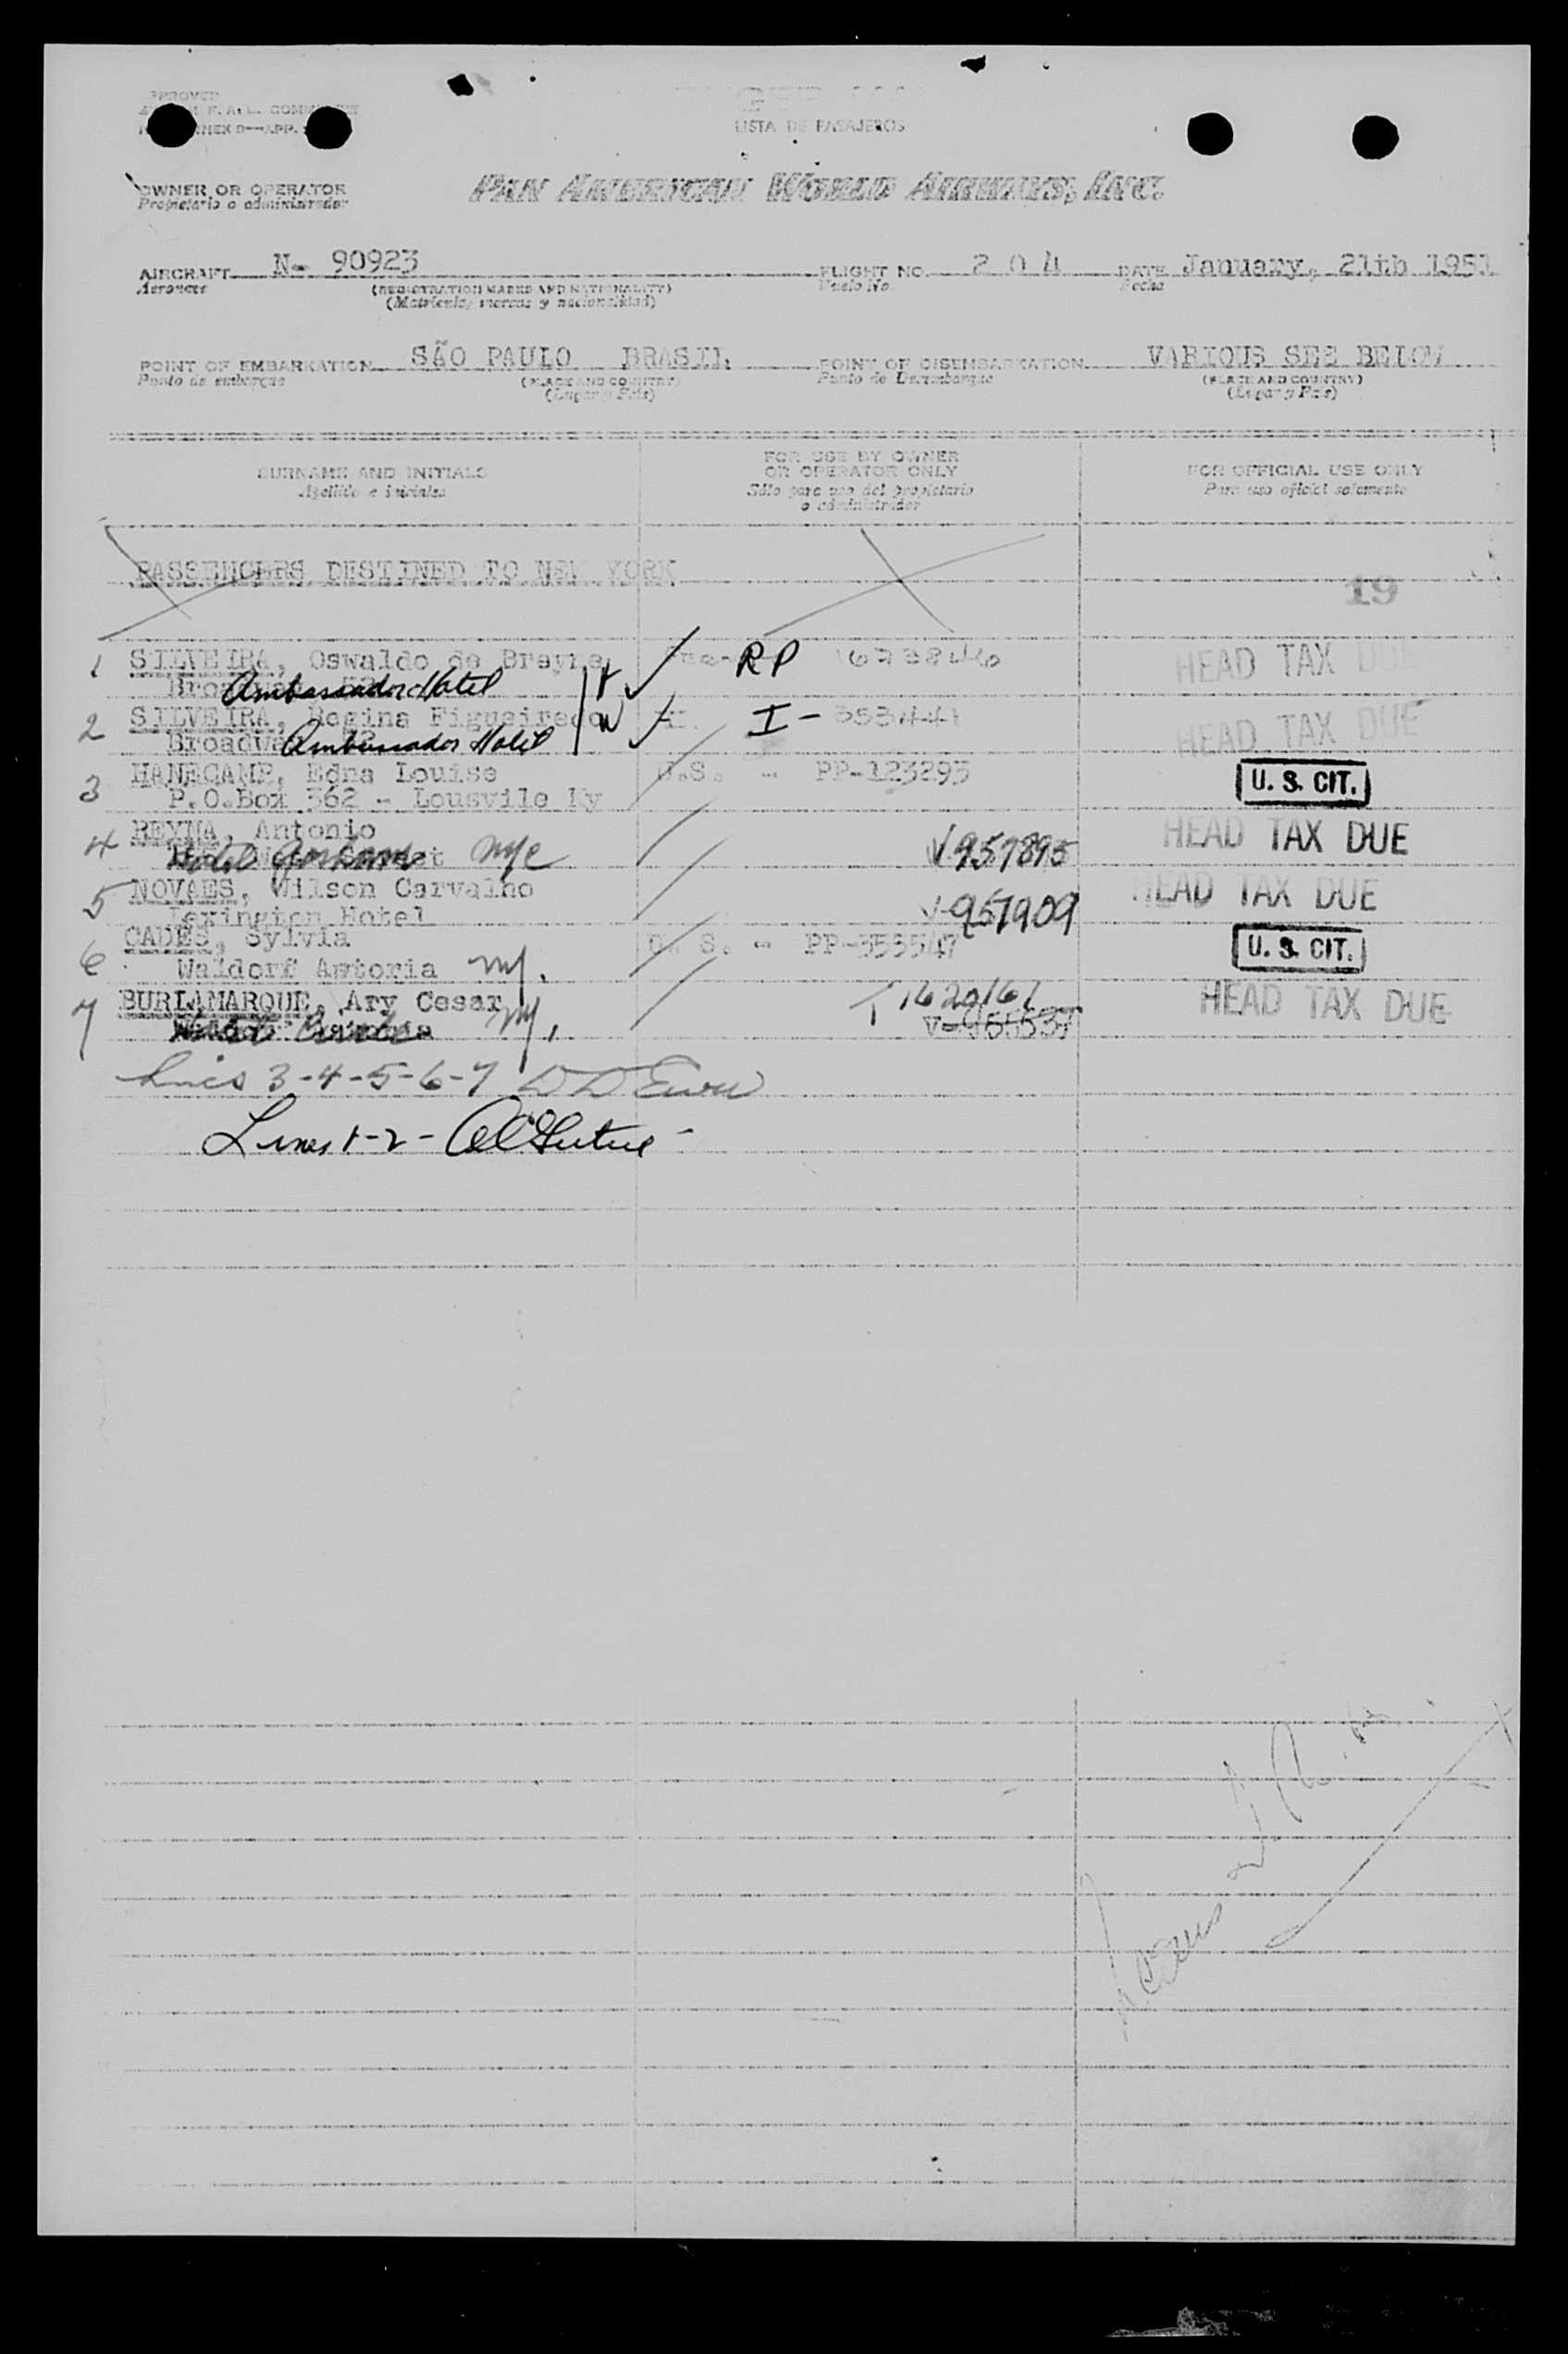 LISTA DE PASAJEROS
OWNER OR OPERATOR
Propietario o administrador
PAN AMERICAN WORLD AIRWAYS, INC.
AIRCRAFT N- 90923 FLIGHT NO. 204 DATE January, 21th 1951
Aeronave (REGISTRATION MARKS AND NATIONALITY) Vuelo No. Fecha
(Matrícula, marcas y nacionalidad)
POINT OF EMBARKATION SÃO PAULO BRASIL POINT OF DISEMBARKATION VARIOUS SEE BELOW
Punto de embarque (PLACE AND COUNTRY) Punto de Desembarque (PLACE AND COUNTRY)
(Lugar y País) (Lugar y País)
SURNAME AND INITIALS FOR USE BY OWNER OR OPERATOR ONLY FOR OFFICIAL USE ONLY
Apellido e iniciales Sólo para uso del propietario o administrador Para uso oficial solamente
PASSENGERS DESTINED TO NEW YORK
19
1 SILVEIRA, Oswaldo de Breyne RP HEAD TAX DUE
Ambassador Hotel
2 SILVEIRA, Regina Figueiredo I- 353441 HEAD TAX DUE
Ambassador Hotel
3 HANECAMP, Edna Louise U.S. - PP-123293 U. S. CIT.
P.O.Box 362 - Lousvile Ky
4 REYNA, Antonio V957895 HEAD TAX DUE
Hotel Gorham NYC
5 NOVAES, Wilson Carvalho V-957909 HEAD TAX DUE
Lexington Hotel
6 CADES, Sylvia U. S. - PP-353547 U. S. CIT.
Waldorf Astoria NY.
7 BURLAMARQUE, Ary Cesar T1620161 HEAD TAX DUE
NY.
Lines 3-4-5-6-7
Lines 1-2-